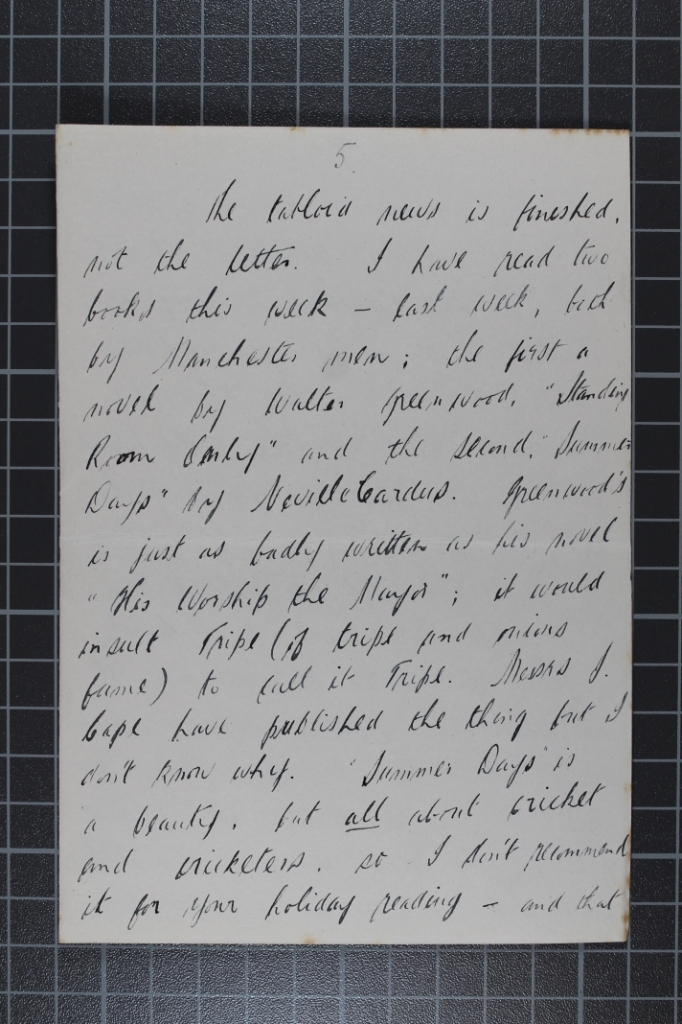 5.
The tabloid news is finished,
not the letter. I have read two
books this week – last week, both
by Manchester men; the first a
novel by Walter Greenwood, "Standing
Room Only" and the second, "Summer
Days" by Neville Cardus. Greenwood's
is just as badly written as his novel
"His Worship the Mayor"; it would
insult Tripe (of tripe and onions
fame) to call it Tripe. Messrs J.
Cape have published the thing but I
don't know why. "Summer Days" is
a beauty, but all about cricket
and cricketers, so I don't recommend
it for your holiday reading – and that